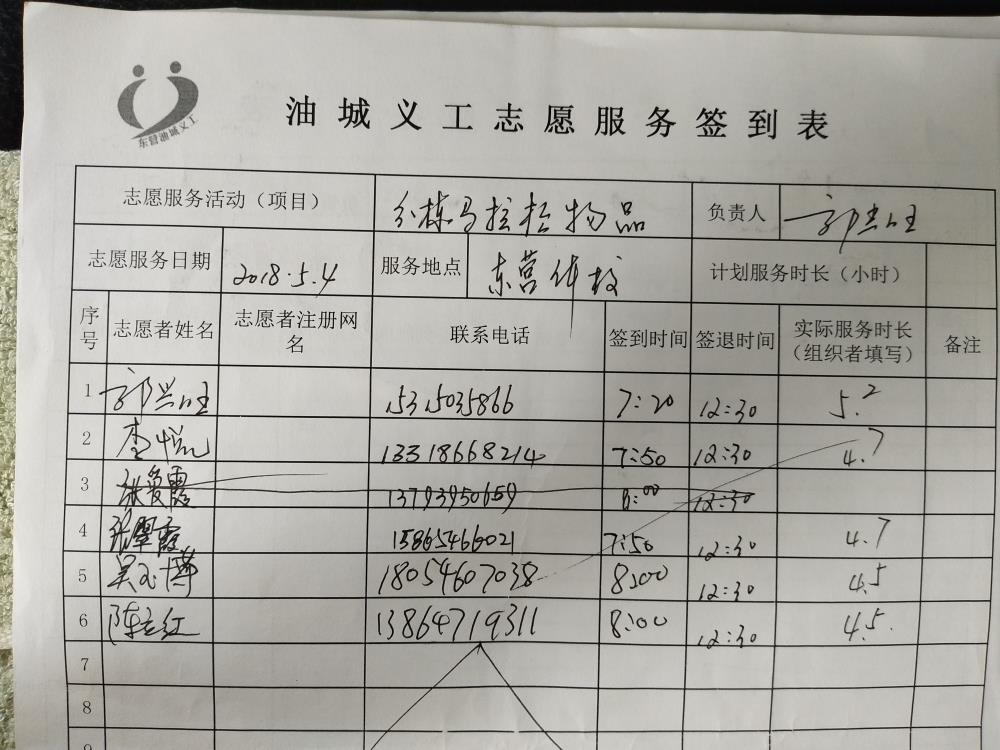 东营油城义工
油城义工志愿服务签到表
志愿服务活动（项目） 分栋马拉松物品 负责人 郭兴旺
志愿服务日期 2018.5.4 服务地点 东营体校 计划服务时长（小时）
序号 志愿者姓名 志愿者注册网名 联系电话 签到时间 签退时间 实际服务时长（组织者填写） 备注
1 郭兴旺 15315035866 7:20 12:30 5.2
2 李悦 13318668214 7:50 12:30 4.7
3 张爱霞 13793950659 8:00 12:30
4 张翠霞 15865466021 7:50 12:30 4.7
5 吴玉博 18054607038 8:00 12:30 4.5
6 陈立红 13864719311 8:00 12:30 4.5.
7
8
9